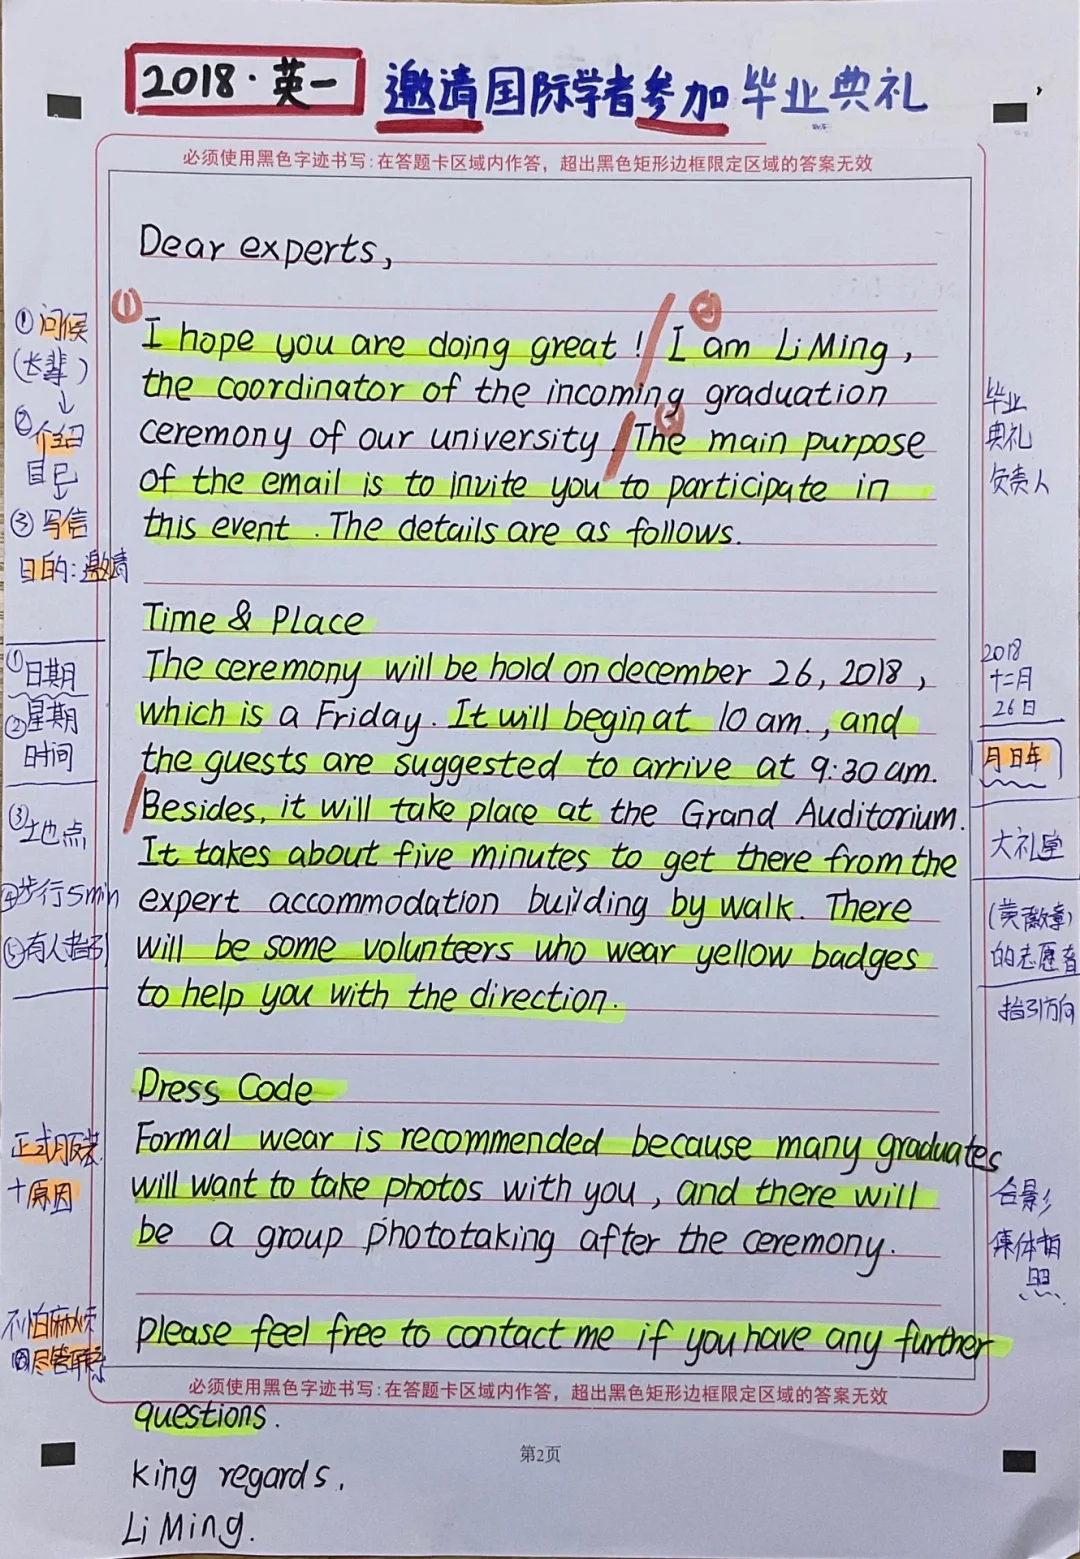 2018·英一 邀请国际学者参加毕业典礼
必须使用黑色字迹书写:在答题卡区域内作答，超出黑色矩形边框限定区域的答案无效
Dear experts,
① ②
I hope you are doing great! I am Li Ming,
the coordinator of the incoming graduation
③
ceremony of our university. The main purpose
of the email is to invite you to participate in
this event. The details are as follows.
Time & Place
The ceremony will be hold on december 26, 2018,
which is a Friday. It will begin at 10 am., and
the guests are suggested to arrive at 9:30 am.
Besides, it will take place at the Grand Auditorium.
It takes about five minutes to get there from the
expert accommodation building by walk. There
will be some volunteers who wear yellow badges
to help you with the direction.
Dress Code
Formal wear is recommended because many graduates
will want to take photos with you, and there will
be a group phototaking after the ceremony.
please feel free to contact me if you have any further
必须使用黑色字迹书写:在答题卡区域内作答，超出黑色矩形边框限定区域的答案无效
questions.
第2页
king regards.
Li Ming.
①问候
(长辈)
②介绍
自己
③写信
目的:邀请
①日期
②星期
时间
③地点
④步行5min
⑤有人指引
正式服装
+原因
不怕麻烦
尽管联系
毕业
典礼
负责人
2018
十二月
26日
月日年
大礼堂
(黄徽章)
的志愿者
指引方向
合影
集体拍
照